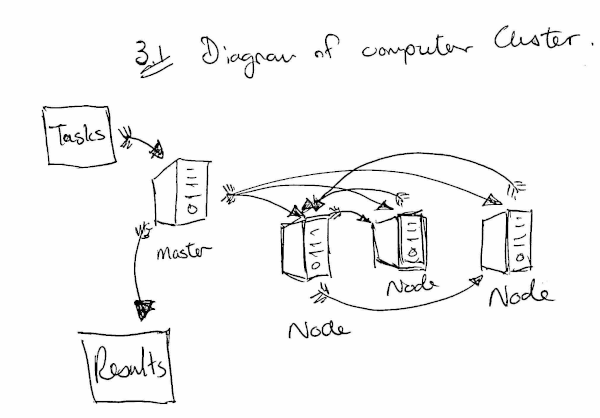 3.1 Diagram of computer Cluster.
Tasks
Master
Node
Node
Node
Results